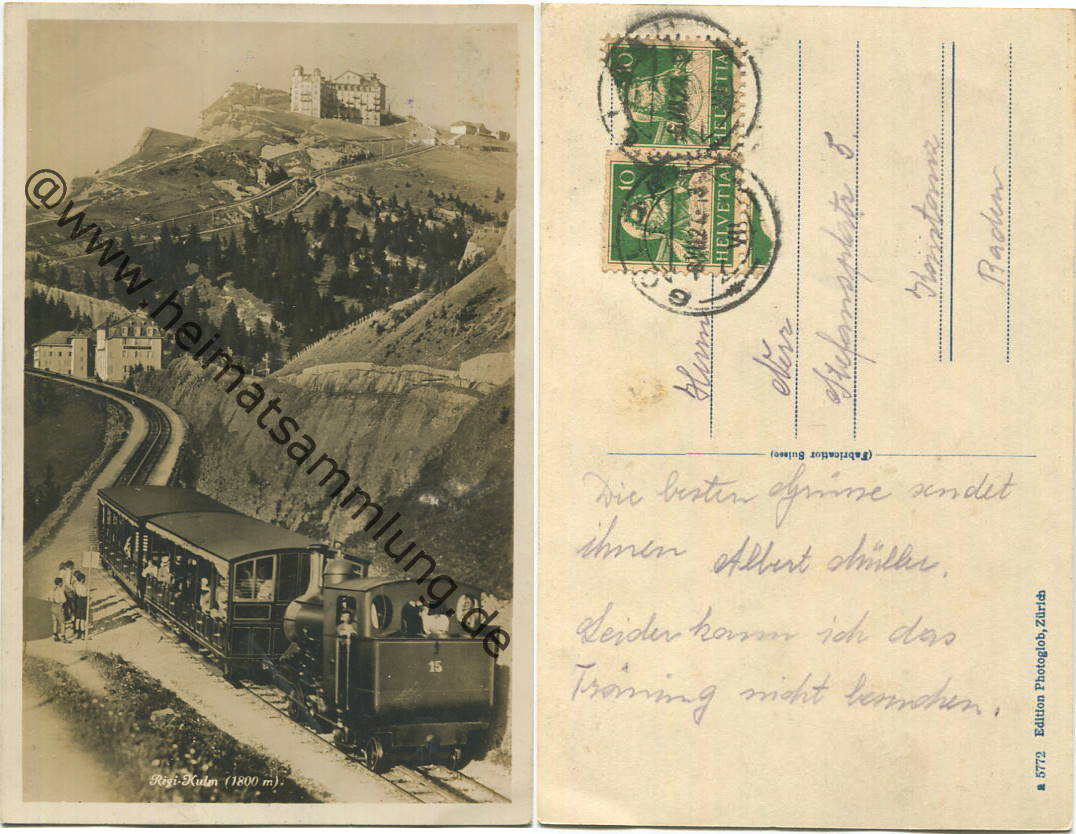 @www.heimatsammlung.de
15
Rigi-Kulm (1800 m).
10
HELVETIA
10
HELVETIA
Herrn
Stefansplatz 5
Konstanz
Baden
(Fabrication Suisse)
Die besten Grüsse sendet
ihnen Albert Müller.
Leider kann ich das
Träning nicht besuchen.
a 5772 Edition Photoglob, Zürich